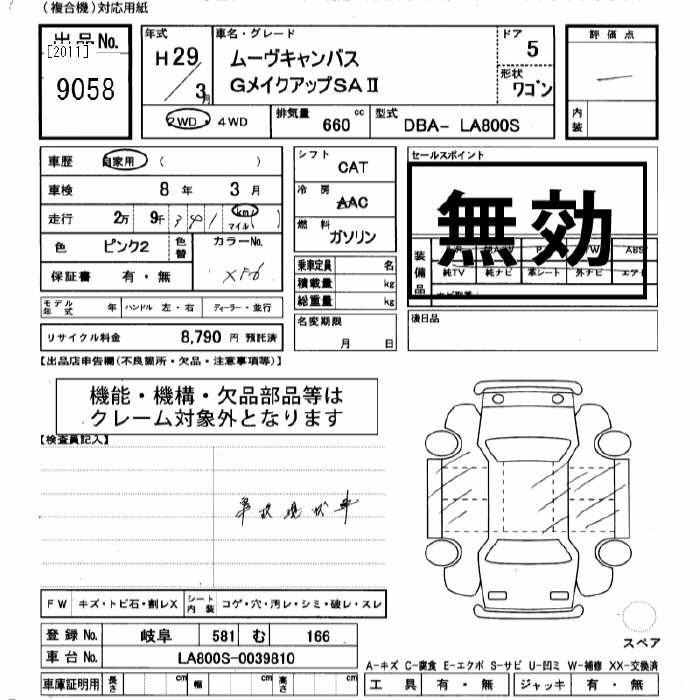 (複合機)対応用紙
出品No.
[2011]
9058
年式
H29
3月
車名・グレード
ムーヴキャンバス
GメイクアップSAⅡ
ドア
5
形状
ワゴン
2WD・4WD
排気量
660 cc
型式
DBA- LA800S
評価点
内装
車歴 自家用 ( )
車検 8年 3月
走行 2万 9千 341 km マイル ( )
色 ピンク2 色替 カラーNo.
保証書 有・無
モデル年式 年 ハンドル 左・右 ディーラー・並行
リサイクル料金 8,790 円 預託済
シフト
CAT
冷房
AAC
燃料
ガソリン
乗車定員 名
積載量 kg
総重量 kg
名変期限
月 日
セールスポイント
無効
装備品
ABS
純TV 純ナビ 革シート 外ナビ
後日品
【出品店申告欄(不良箇所・欠品・注意事項等)】
機能・機構・欠品部品等は
クレーム対象外となります
【検査員記入】
事故現状車
FW キズ・トビ石・割レX シート内装 コゲ・穴・汚レ・シミ・破レ・スレ
登録No. 岐阜 581 む 166
車台No. LA800S-0039810
車庫証明用 長さ cm 幅 cm 高さ cm
スペア
A-キズ C-腐食 E-エクボ S-サビ U-凹ミ W-補修 XX-交換済
工具 有・無 ジャッキ 有・無